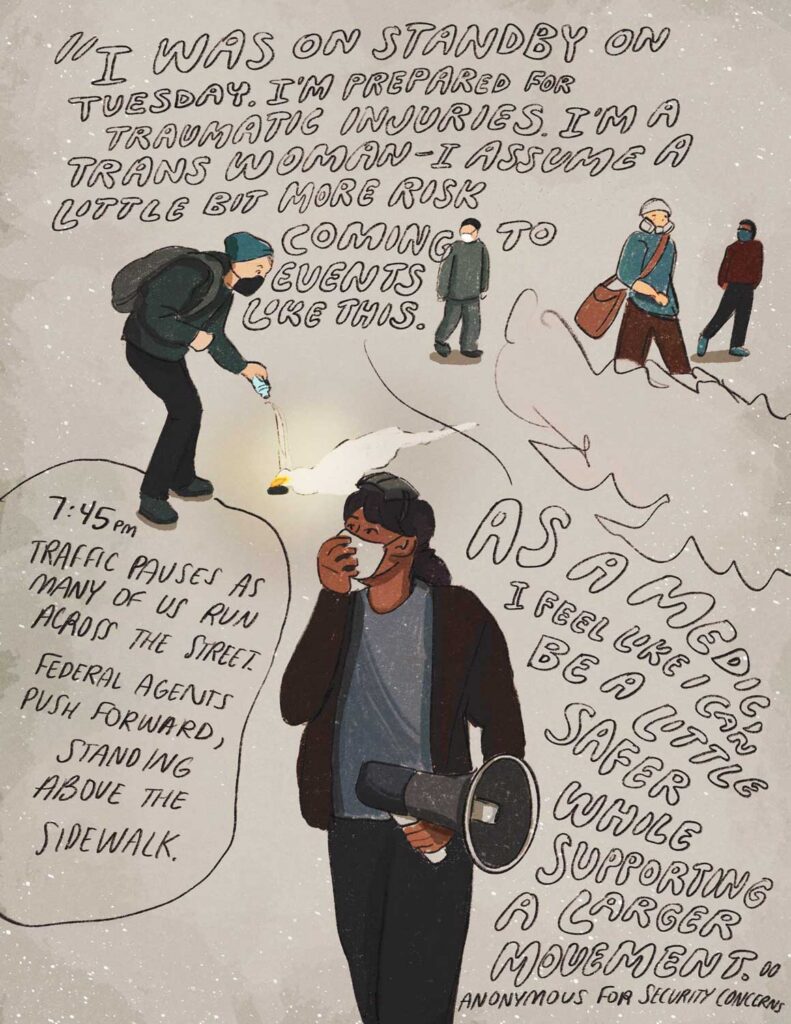 "I WAS ON STANDBY ON
TUESDAY. I'M PREPARED FOR
TRAUMATIC INJURIES. I'M A
TRANS WOMAN-I ASSUME A
LITTLE BIT MORE RISK
COMING TO
EVENTS
LIKE THIS.
7:45 PM
TRAFFIC PAUSES AS
MANY OF US RUN
ACROSS THE STREET.
FEDERAL AGENTS
PUSH FORWARD,
STANDING
ABOVE THE
SIDEWALK.
AS A MEDIC
I FEEL LIKE I CAN
BE A LITTLE
SAFER
WHILE
SUPPORTING
A LARGER
MOVEMENT."
ANONYMOUS FOR SECURITY CONCERNS